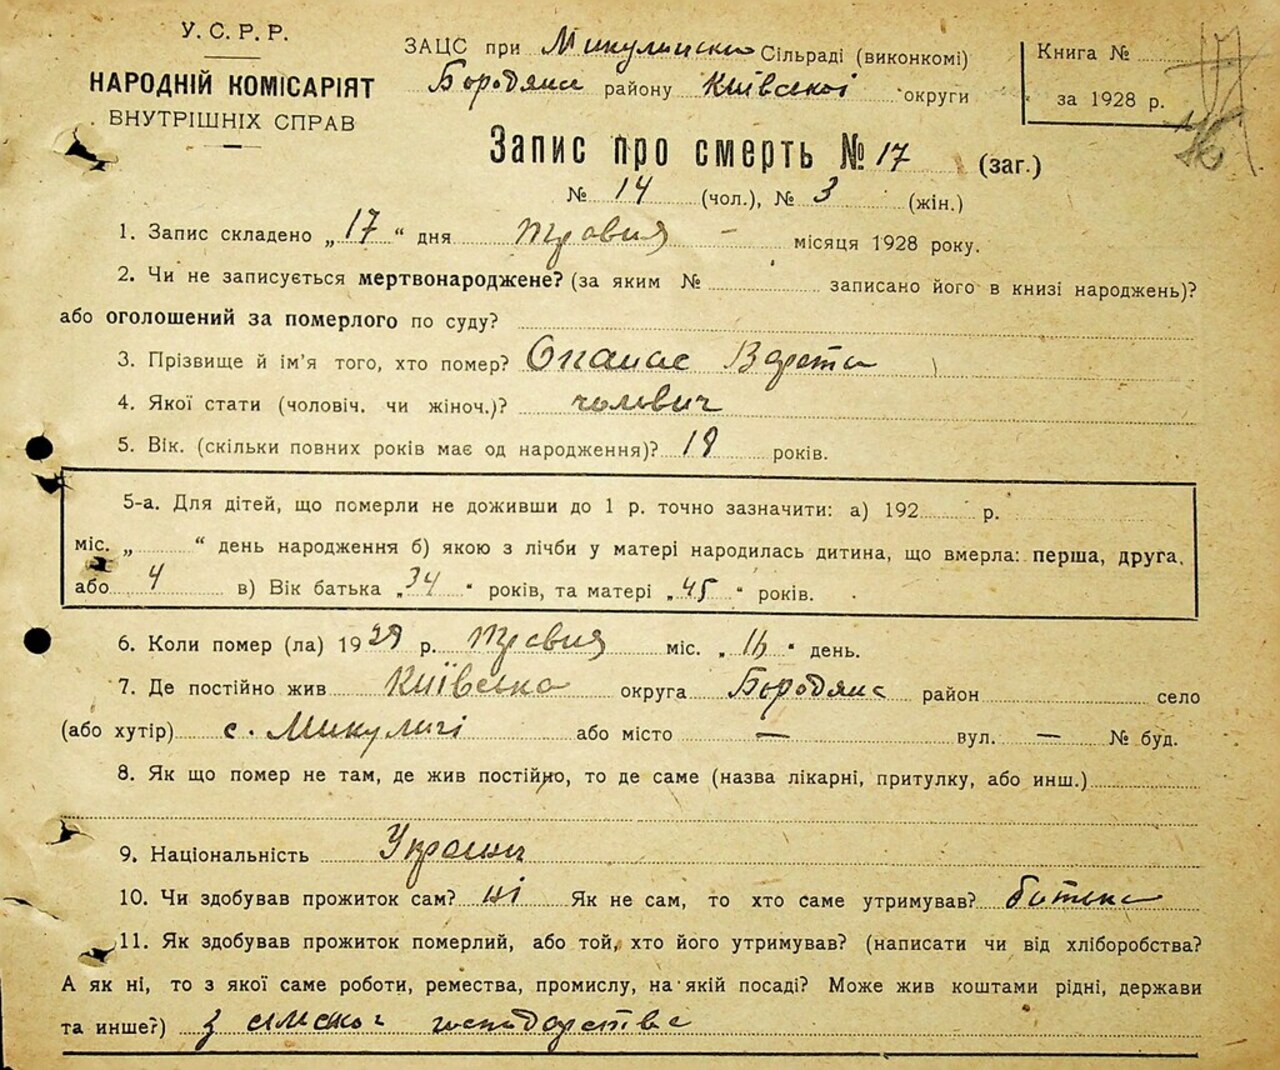 У. С. Р. Р.
НАРОДНІЙ КОМІСАРІЯТ
ВНУТРІШНІХ СПРАВ
ЗАЦС при Микулинські Сільраді (виконкомі)
Бородянс району Київської округи
Книга №
за 1928 р.
17
16
Запис про смерть № 17 (заг.)
№ 14 (чол.), № 3 (жін.)
1. Запис складено „17“ дня травня – місяця 1928 року.
2. Чи не записується мертвонароджене? (за яким № записано його в книзі народжень)?
або оголошений за померлого по суду?
3. Прізвище й ім'я того, хто помер? Опанас
4. Якої стати (чоловіч. чи жіноч.)? чоловіч
5. Вік. (скільки повних років має од народження)? 18 років.
5-а. Для дітей, що померли не доживши до 1 р. точно зазначити: а) 192 р.
міс. „ “ день народження б) якою з лічби у матері народилась дитина, що вмерла: перша, друга,
або 4 в) Вік батька „34“ років, та матері „45“ років.
6. Коли помер (ла) 1928 р. травня міс. „16“ день.
7. Де постійно жив Київська округа Бородянс район село
(або хутір) с. Микуличі або місто — вул. — № буд.
8. Як що помер не там, де жив постійно, то де саме (назва лікарні, притулку, або инш.)
9. Національність Україн
10. Чи здобував прожиток сам? ні Як не сам, то хто саме утримував? батько
11. Як здобував прожиток померлий, або той, хто його утримував? (написати чи від хліборобства?
А як ні, то з якої саме роботи, ремества, промислу, на якій посаді? Може жив коштами рідні, держави
та инше?) з сільского господарства